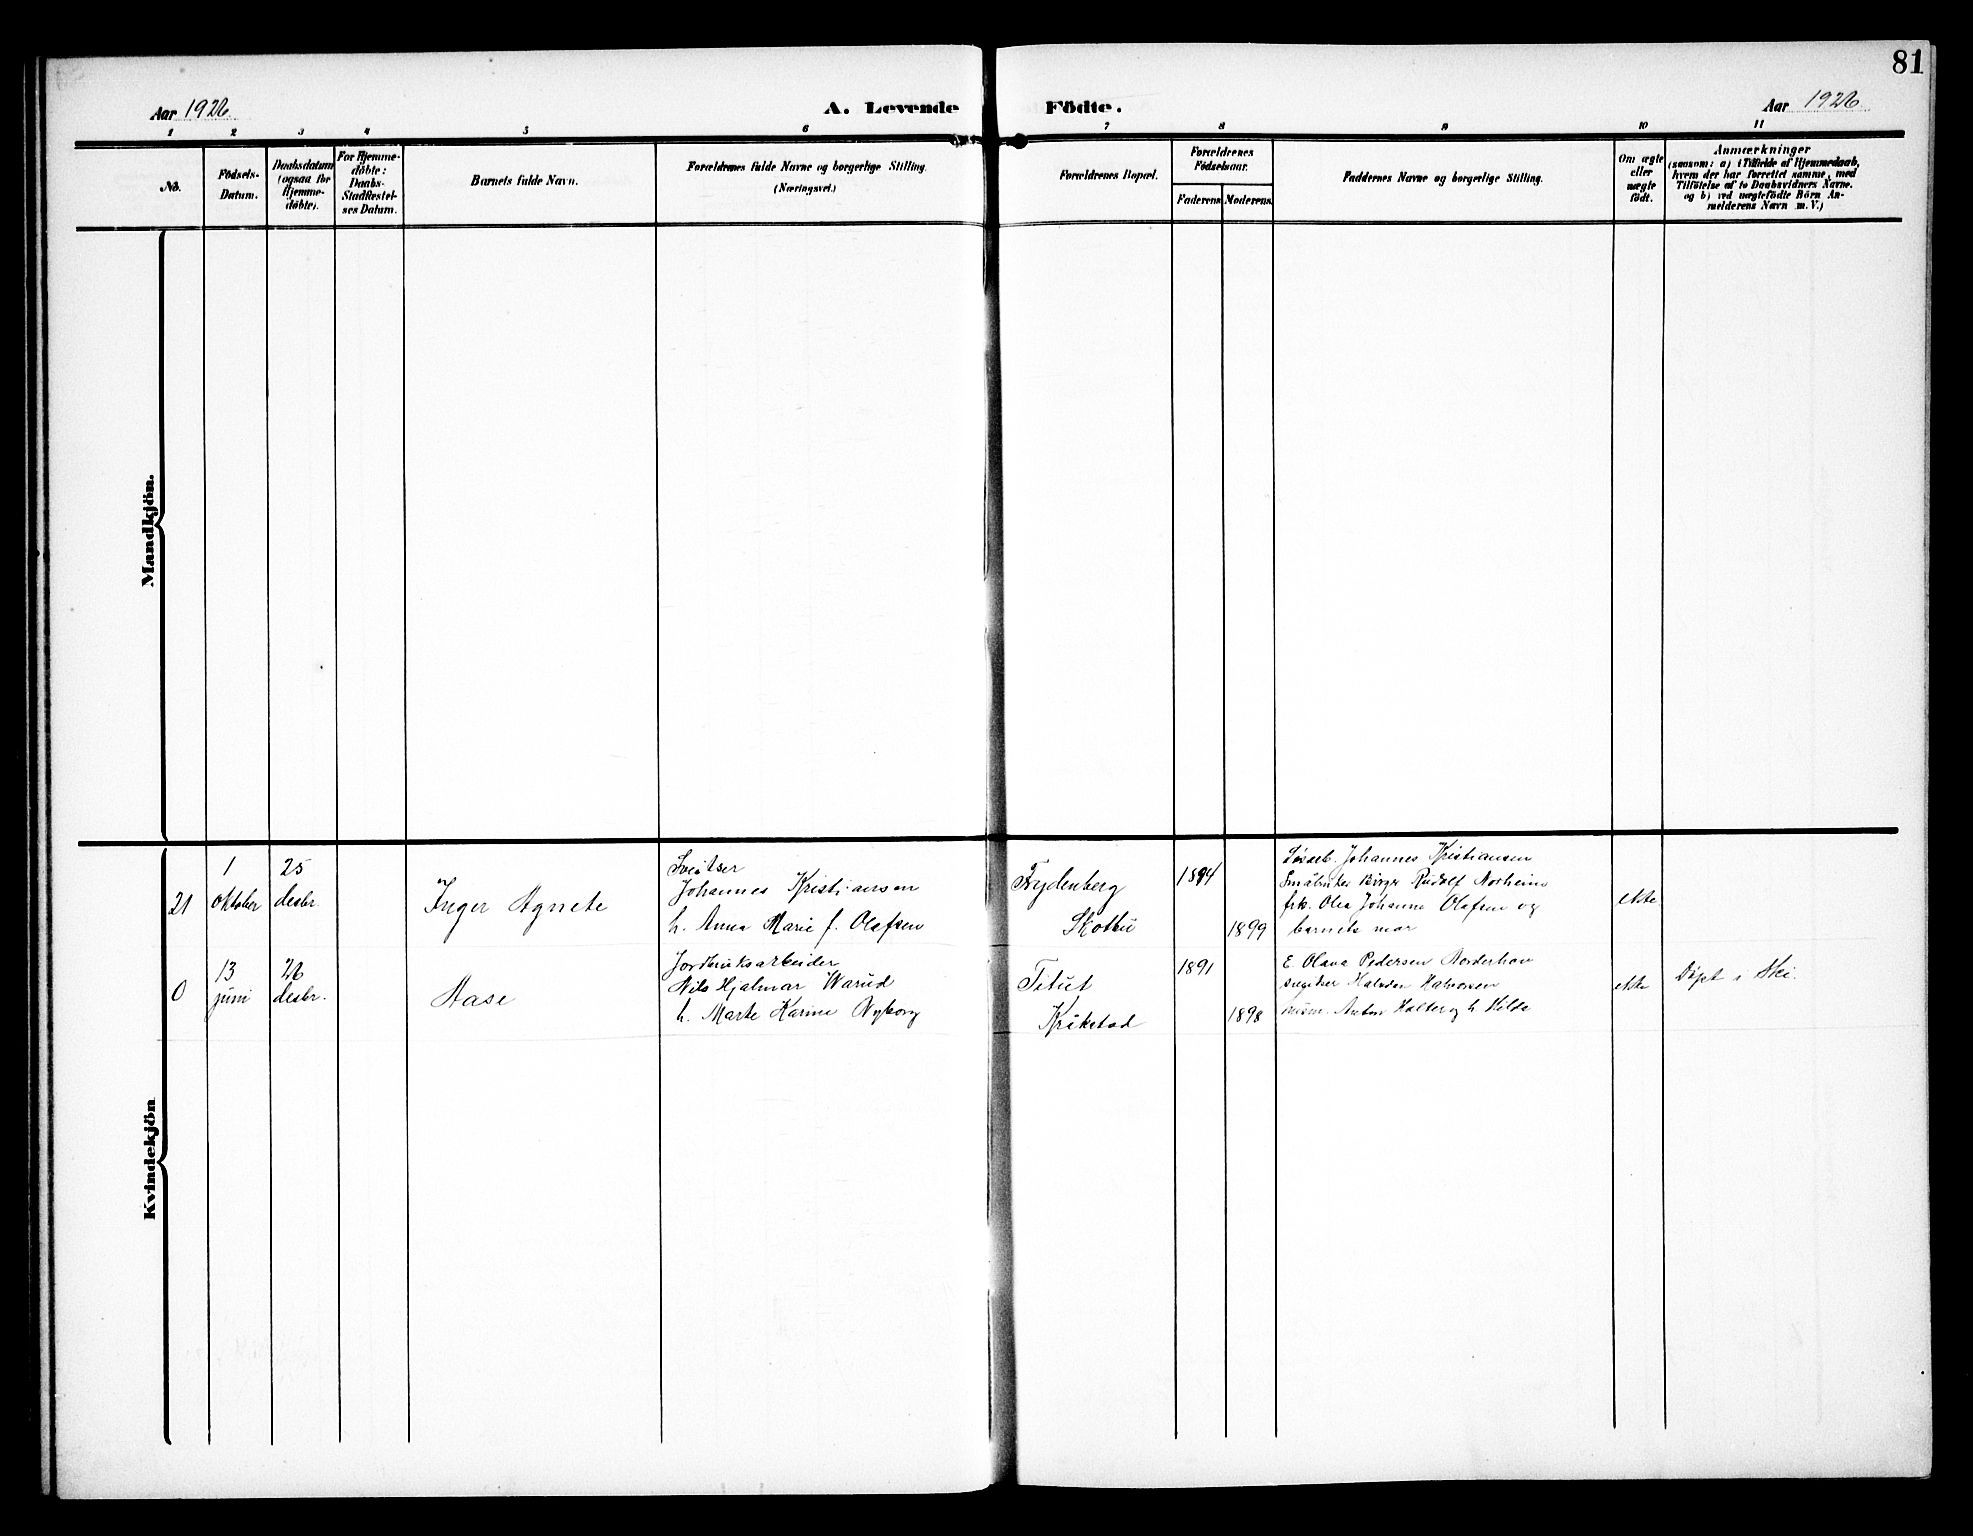 81
Aar 1926
A. Levende Födte.
Aar 1926
1 2 3 4 5 6 7 8 9 10 11
No.
Födsels-
Datum.
Daabsdatum
(ogsaa for
Hjemme-
döbte).
For Hjemme-
döbte:
Daabs-
Stadfæstel-
ses Datum.
Barnets fulde Navn.
Forældrenes fulde Navne og borgerlige Stilling.
(Næringsvei.)
Forældrenes Bopæl.
Forældrenes
Födselsaar.
Faderens Moderens
Faddernes Navne og borgerlige Stilling.
Om ægte
eller
uægte
födt.
Anmærkninger
(saasom: a) i Tilfælde af Hjemmedaab,
hvem der har forrettet samme, med
Tilföielse af to Daabsvidners Navne.
og b) ved uægtefödte Börn An-
melderens Navn m. V.)
Mandkjön.
Kvindekjön
21
1
oktober
25
desbr.
Inger Agnete
Sveitser
Johannes Kristiansen
h. Anna Marie f. Olafsen
Frydenberg
Skotbu
1894
1899
Løsarb. Johannes Kristiansen
Birger Rudolf Norheim
frk. Olea Johanne Olafsen og
barnets mor
ekte
0
13
juni
26
desbr.
Aase
Jordbruksarbeider
Nils Hjalmar Warud
h. Marte Karine Nyborg
Titut
Kråkstad
1891
1898
E. Olava Pedersen Norderhov
Halvdan Halvorsen
Anton Holter og h Hilda
ekte
Døpt i Ski.